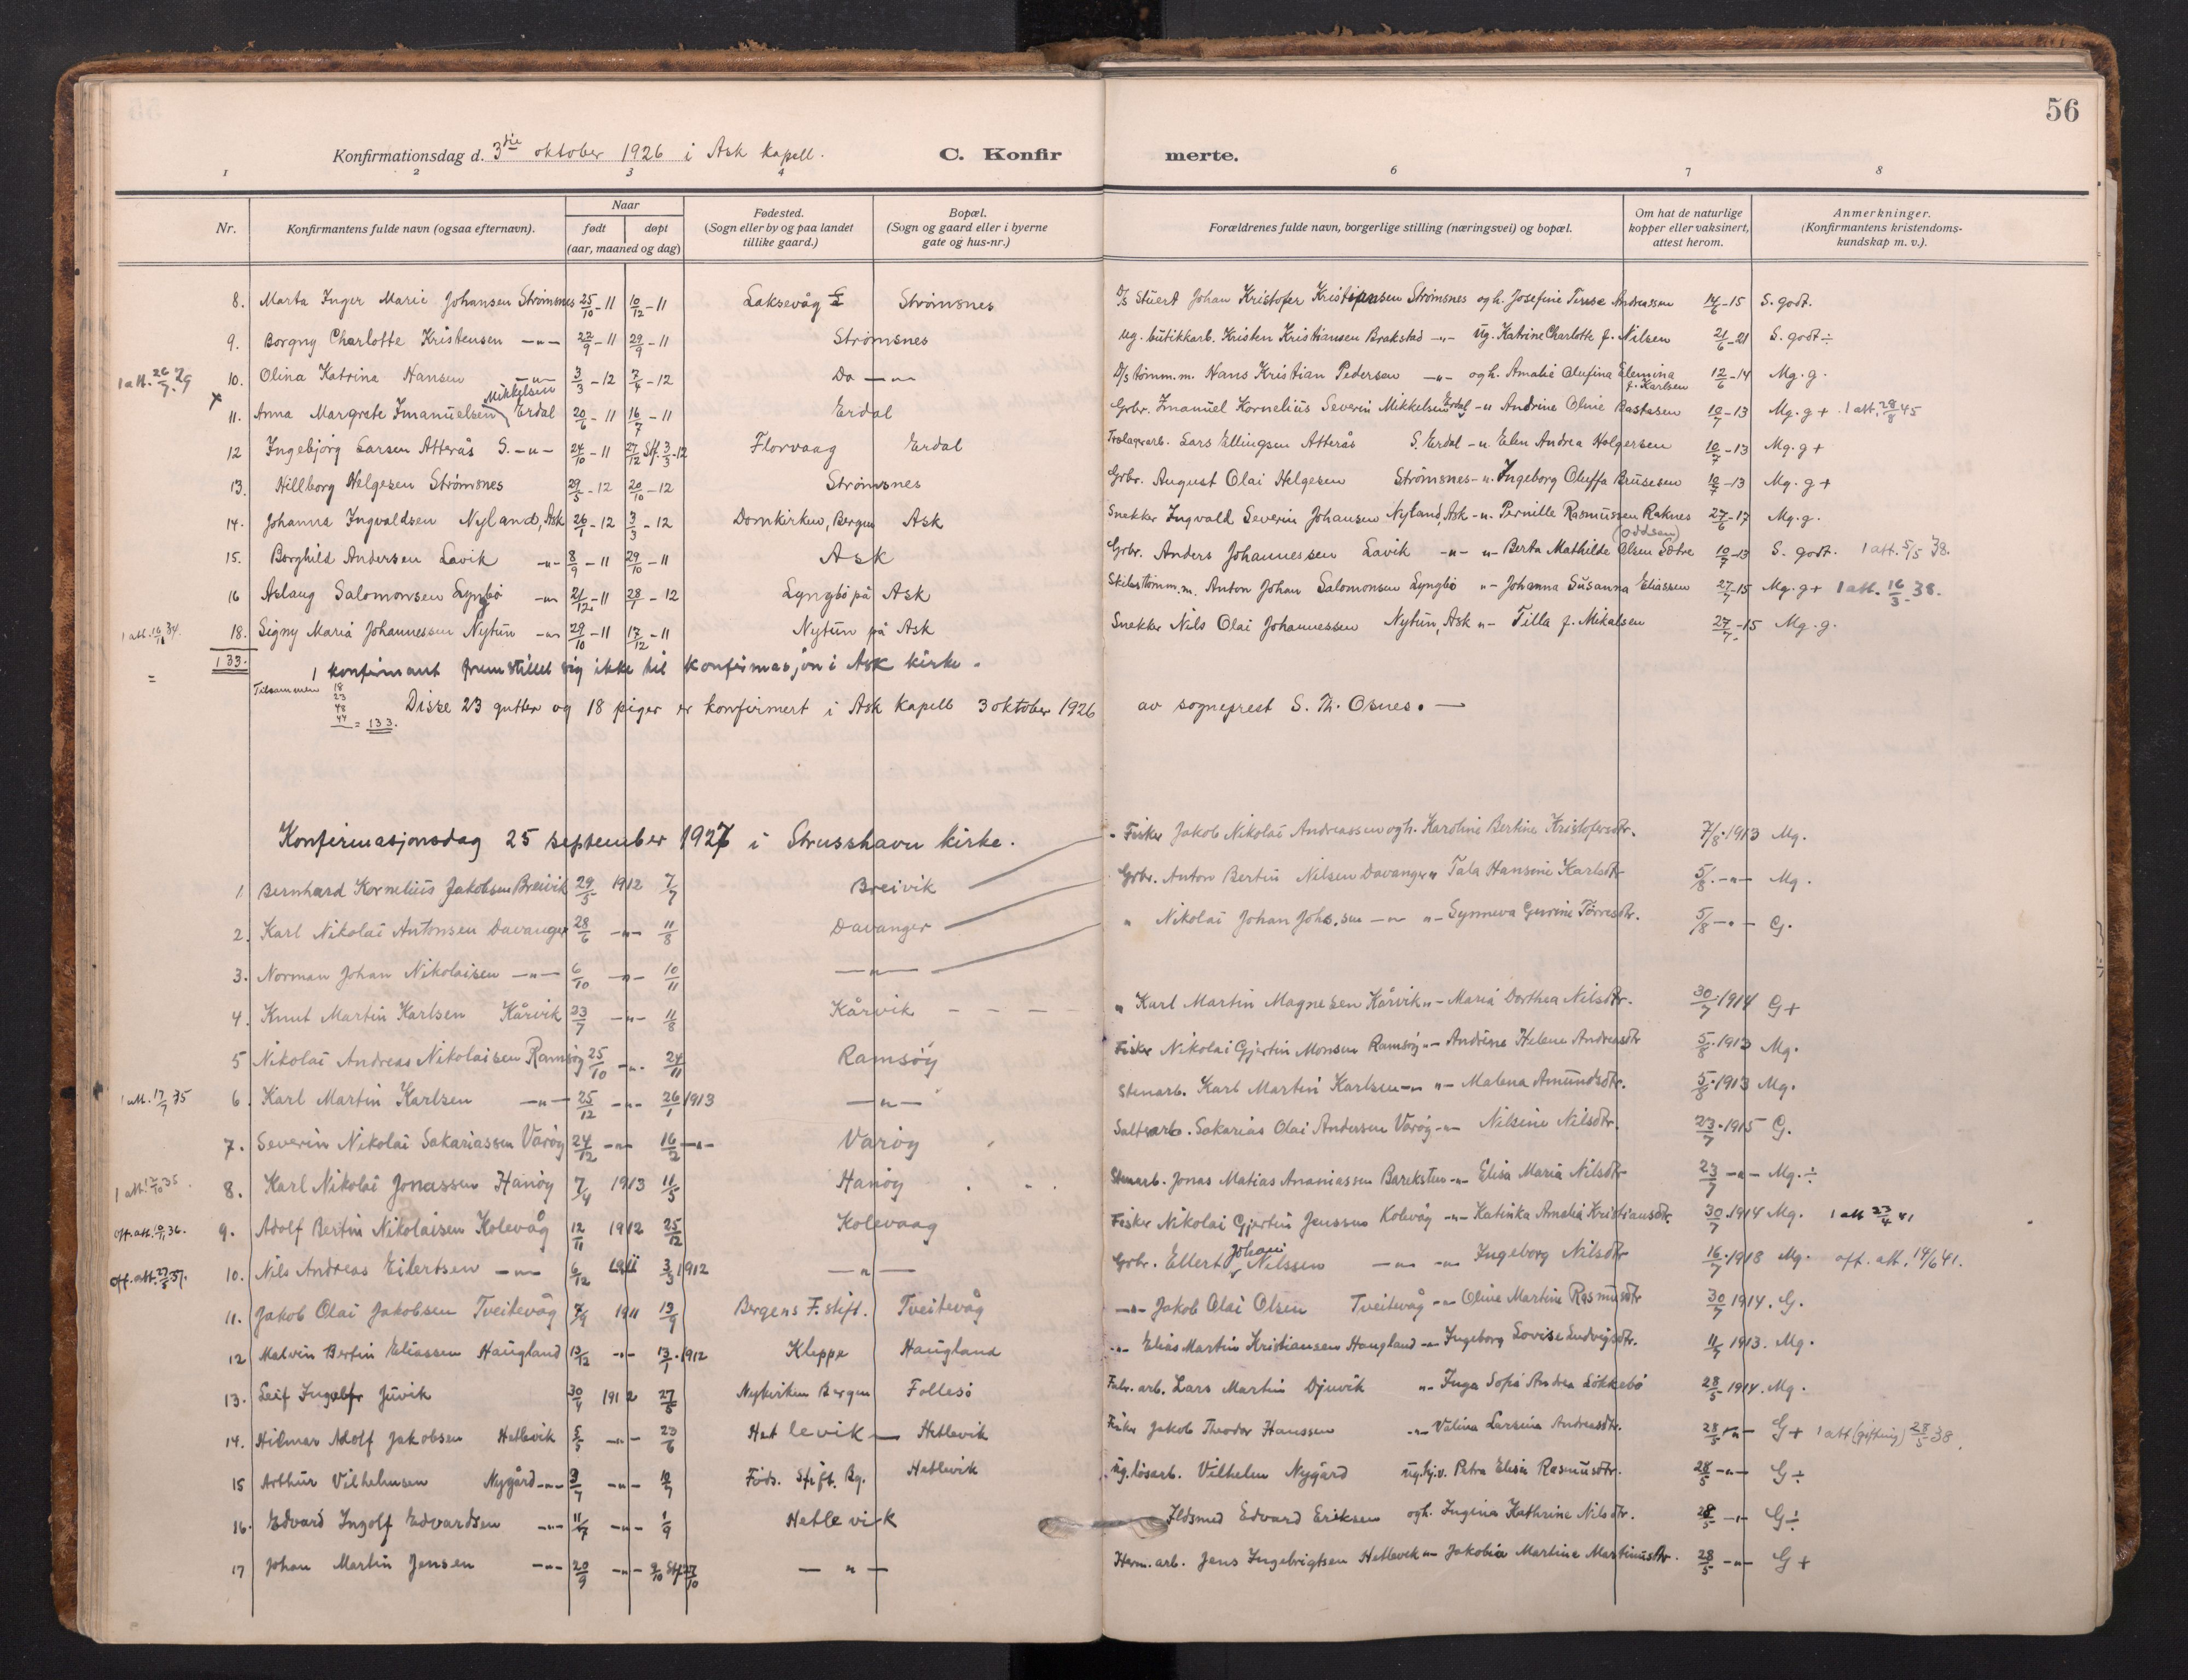 56
Konfirmationsdag d. 3die oktober 1926 i Ask kapell. C. Konfirmerte.
1 2 3 4 6 7 8
Nr. Konfirmantens fulde navn (ogsaa efternavn). Naar født døpt (aar, maaned og dag) Fødested. (Sogn eller by og paa landet tillike gaard.) Bopæl. (Sogn og gaard eller i byerne gate og hus-nr.) Forældrenes fulde navn, borgerlige stilling (næringsvei) og bopæl. Om hat de naturlige kopper eller vaksinert, attest herom. Anmerkninger. (Konfirmantens kristendoms-kundskap m. v.).
8. Marta Inger Marie Johansen Strømsnes 25/10-11 10/12-11 Laksevåg Strømsnes D/s Stuert Johan Kristofer Kristiansen Strømsnes og h. Josefine Terese Andreassen 14/6-15 S. godt.
9. Borgny Charlotte Kristensen -"- 22/9-11 29/9-11 Strømsnes ug. butikkarb. Kristen Kristiansen Brakstad -"- ug. Katrine Charlotte f. Nilsen 21/6-21 S. godt ÷
1 att. 26/7 29 10. Olina Katrina Hansen -"- 3/3-12 7/4-12 Do -"- D/s tømm.m. Hans Kristian Pedersen -"- og h. Amalie Olufina Elemina f. Karlsen 12/6-14 Mg. g.
x 11. Anna Margrete Imanuelsen Mikkelsen Erdal 20/6-11 16/7-11 Erdal Grbr. Imanuel Kornelius Severin Mikkelsen Erdal -"- Andrine Oline Bastesen 10/7-13 Mg. g + 1 att. 28/8 45
12 Ingebjørg Larsen Atterås S. -"- 24/10-11 27/12 Stf. 3/3-12 Florvaag Erdal Lars Ellingsen Atterås S. Erdal -"- Elen Andrea Holgersen 10/7-13 Mg. g +
13. Hillborg Helgesen Strømsnes 29/5-12 20/10-12 Strømsnes Grbr. August Olai Helgesen Strømsnes -"- Ingeborg Oluffa Brusesen 10/7-13 Mg. g +
14. Johanna Ingvaldsen Nyland, Ask 26/1-12 3/3-12 Domkirken, Bergen Ask Snekker Ingvald Severin Johansen Nyland, Ask -"- Pernille Rasmussen Raknes 27/6-17 Mg. g.
15. Borghild Andersen Lavik -"- 8/9-11 29/10-11 Ask Grbr. Anders Johannessen Lavik -"- -"- Berta Mathilde (Oddsen) Olsen Sætre 10/7-13 S. godt. 1 att. 5/5 38.
16 Aslaug Salomonsen Lyngbø -"- 21/12-11 28/1-12 Lyngbø på Ask Skibstømm.m. Anton Johan Salomonsen Lyngbø "- Johanna Susanna Eliassen 27/7-15 Mg. g + 1 att. 16/3 38.
1 att. 34. 18. Signy Maria Johannessen Nytun -"- 29/10-11 17/12-11 Nytun på Ask Snekker Nils Olai Johannessen Nytun, Ask "- Tilla f. Mikalsen 27/7-15 Mg. g.
= 133. 1 konfirmant fremstillet sig ikke til konfirmasjon i Ask kirke.
Tilsammen 18 23 48 44 = 133. Disse 23 gutter og 18 piger er konfirmert i Ask kapell 3 oktober 1926 av sogneprest S. Th. Osnes. —
Konfirmasjonsdag 25 september 1927 i Strusshavn kirke.
1 Bernhard Kornelius Jakobsen Breivik 29/5 1912 7/7 Breivik Fisker Jakob Nikolai Andreassen og h. Karoline Bertine Kristofersdtr. 7/8 1913 Mg.
2. Karl Nikolai Antonsen Davanger 28/6 -"- 11/8 Davanger Grbr. Anton Bertin Nilsen Davanger " Tala Hansine Karlsdtr 5/8 -"- Mg.
3. Norman Johan Nikolaisen -"- 6/10 -"- 10/11 -"- " Nikolai Johan Johs.sen -"- "- Synneva Gurine Tørresdtr. 5/8 -"- G.
4. Knut Martin Karlsen Kårvik 23/7 -"- 11/8 Kårvik " Karl Martin Magnesen Kårvik "- Maria Dorthea Nilsdtr. 30/7 1914 G +
5 Nikolai Andreas Nikolaisen Ramsøy 25/10 -"- 24/11 Ramsøy Fisker Nikolai Gjertin Monsen Ramsøy "- Andrine Helene Andreasdtr 5/8 1913 Mg.
1 att. 17/7 35 6. Karl Martin Karlsen -"- 25/12 -"- 26/1 1913 -"- Stenarb. Karl Martin Karlsen -"- "- Malena Amundsdtr. 5/8 1913 Mg.
7. Severin Nikolai Sakariassen Varøy 24/12 -"- 16/2 -"- Varøy Saltearb. Sakarias Olai Andersen Varøy -"- Nilsine Nilsdtr. 23/7 1915 G.
1 att. 35. 8. Karl Nikolai Jonassen Hanøy 7/4 1913 11/5 Hanøy Stenarb. Jonas Matias Ananiassen Bareksten -"- Elisa Maria Nilsdtr 23/7 -"- Mg. ÷
off. att. 36. 9. Adolf Bertin Nikolaisen Kolevåg 12/11 1912 25/12 Kolevaag Fisker Nikolai Gjertin Jenssen Kolevåg -"- Katinka Amalia Kristiansdtr. 30/7 1914 Mg. 1 att 23/4 41
off. att. 10. Nils Andreas Eilertsen -"- 6/12 1911 3/3 1912 -"- Grbr. Ellert Johan Nilssen -"- -"- Ingeborg Nilsdtr 16/7 1918 Mg. off. att. 14/6 41.
11. Jakob Olai Jakobsen Tveitevåg 7/9 1911 13/9 Bergens F. stift. Tveitevåg -"- Jakob Olai Olsen Tveitevåg -"- Oline Martine Rasmusdtr 30/7 1914. G.
12 Malvin Bertin Eliassen Haugland 13/12 -"- 13/1 1912 Kleppe Haugland -"- Elias Martin Kristiansen Haugland -"- Ingeborg Lovise Ludvigsdtr. 11/7 1913. Mg.
13. Leif Ingolfr Juvik 30/4 1912 27/5 Nykirken Bergen Follesø Fabr. arb. Lars Martin Djuvik "- Inga Sofie Andrea Løkkebø 28/5 1914. Mg.
14. Hilmar Adolf Jakobsen Hetlevik 5/5 -"- 23/6 Hetlevik — Hetlevik Fisker Jakob Theodor Hanssen -"- Valina Larsina Andreasdtr. 28/5 -"- G + 1 att (giftning) 28/5 38.
15 Arthur Vilhelmsen Nygård -"- 3/7 -"- 10/7 Føds. stift. Bg. Hetlevik ug. løsarb. Vilhelm Nygård ug. tj. Petra Elisa Rasmusdtr. 28/5 -"- G ÷
16. Edvard Ingolf Edvardsen -"- 11/7 -"- 1/9 Hetlevik Ildsmed Edvard Eriksen og h. Ingina Kathrine Nilsdtr. 28/5 -"- G ÷
17 Johan Martin Jensen -"- 20/9 -"- 9/10 Stf 27/10 -"- Herm. arb. Jens Ingebrigtsen Hetlevik "- Jakobia Martine Martinusdtr. 28/5 -"- G +